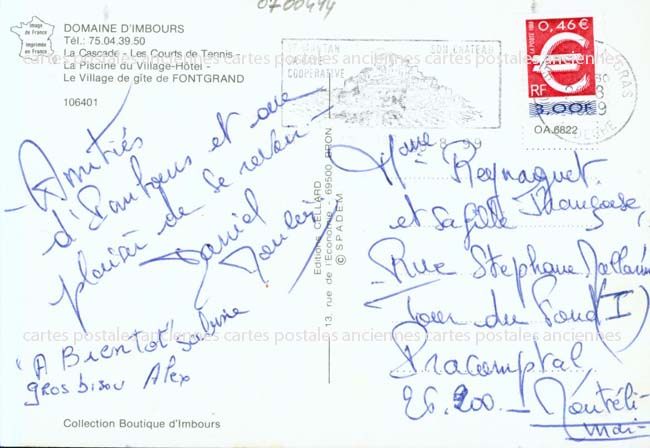 0700414
Image de France
Imprimée en France
DOMAINE D'IMBOURS
Tél.: 75.04.39.50
La Cascade - Les Courts de Tennis -
La Piscine du Village-Hôtel -
Le Village de gîte de FONTGRAND
106401
Amitiés
d'Imbours et au
plaisir de se revoir -
Daniel
"A Bientot" Sabrine
gros bisou Alex
Collection Boutique d'Imbours
Editions CELLARD
13, rue de l'Economie - 69500 BRON
© SPADEM
SON CHATEAU
COOPERATIVE
8 99
0,46 €
RF
3,00F
OA.6822
Mme Reynaguet
et sa fille Françoise,
Rue Stephane Mallarmé
Tour du Fond (I)
Pracomptal
26.200 - Montéli-
mar -
cartes postales anciennes cartes postales anciennes cartes postales anciennes
cartes postales anciennes cartes postales anciennes cartes postales anciennes